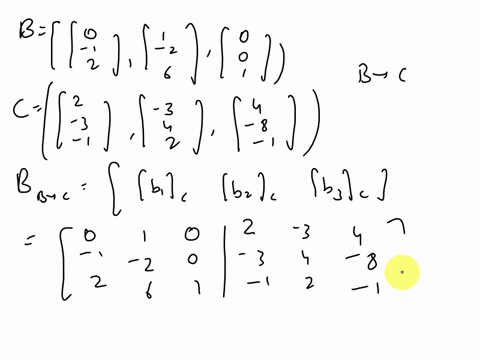 B = ( [0 -1 2], [1 -2 6], [0 0 1] )
B → C
C = ( [2 -3 -1], [-3 4 2], [4 -8 -1] )
B B→C = [ [b1]C [b2]C [b3]C ]
= [ 0 1 0 | 2 -3 4 ]
-1 -2 0 | -3 4 -8
2 6 1 | -1 2 -1